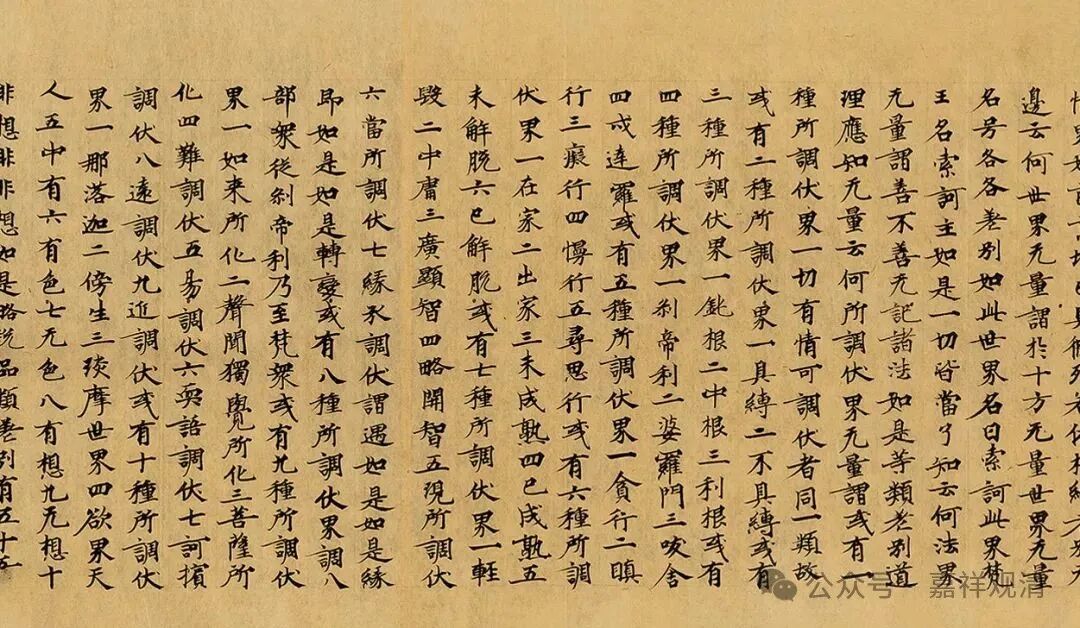 邊云何世界无量謂於十方无量世界无量
名号各各差別如此世界名曰索訶此界梵
王名索訶主如是一切皆當了知云何法界
无量謂善不善无記諸法如是等類差別道
理應知无量云何所調伏界无量謂或有一
種所調伏界一切有情可調伏者同一類故
或有二種所調伏界一具縛二不具縛或有
三種所調伏界一鈍根二中根三利根或有
四種所調伏界一剎帝利二婆羅門三吠舍
四戍達羅或有五種所調伏界一貪行二瞋
行三癡行四慢行五尋思行或有六種所調
伏界一在家二出家三未成熟四已成熟五
未解脫六已解脫或有七種所調伏界一輕
毀二中庸三廣顯智四略開智五現所調伏
六當所調伏七緣引調伏謂遇如是如是緣
即如是如是轉變或有八種所調伏界調八
部衆從剎帝利乃至梵衆或有九種所調伏
界一如來所化二聲聞獨覺所化三菩薩所
化四難調伏五易調伏六耎語調伏七訶擯
調伏八遠調伏九近調伏或有十種所調伏
界一那落迦二傍生三琰摩世界四欲界天
人五中有六有色七无色八有想九无想十
非想非非想如是略說品類差別有五十五
公众号·嘉祥观清